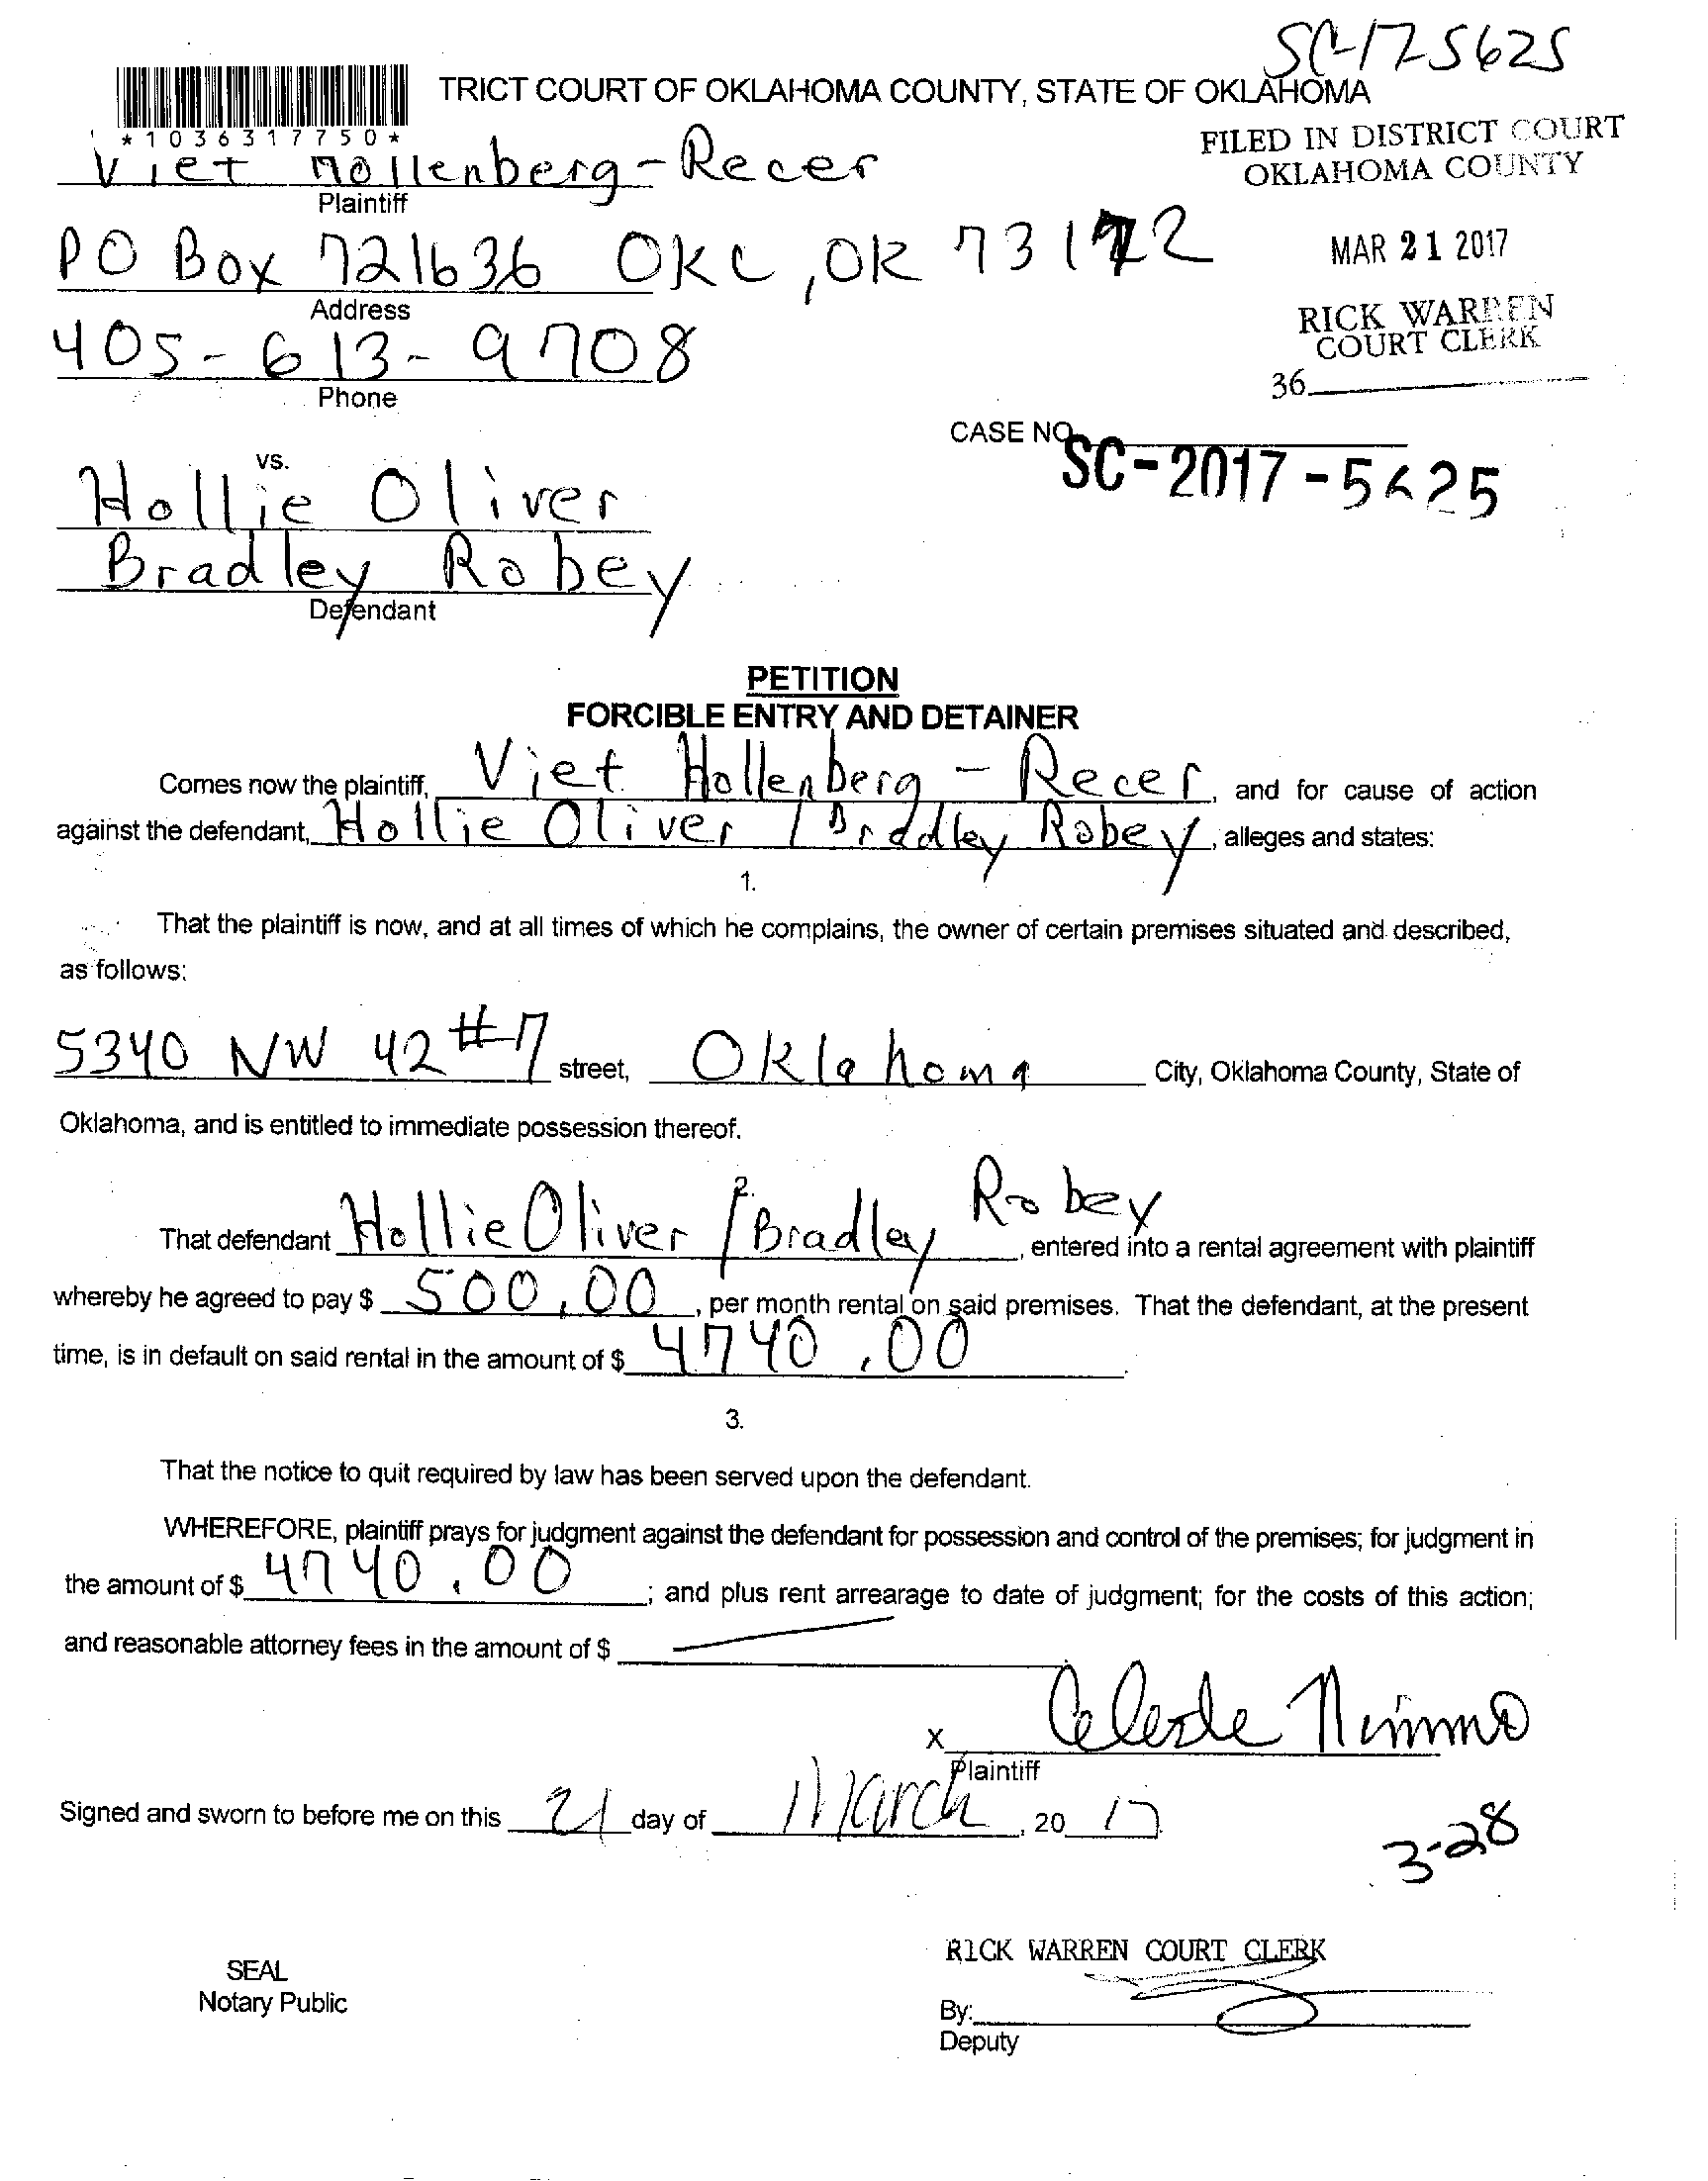 SC-17-5625
TRICT COURT OF OKLAHOMA COUNTY, STATE OF OKLAHOMA
*1036317750*
FILED IN DISTRICT COURT
OKLAHOMA COUNTY
Viet Hollenberg-Recer
Plaintiff
PO Box 721636 OKC, OK 73172
MAR 21 2017
Address
RICK WARREN
COURT CLERK
405-613-9708
36
Phone
CASE NO.
SC-2017-5625
vs.
Hollie Oliver
Bradley Robey
Defendant
PETITION
FORCIBLE ENTRY AND DETAINER
Comes now the plaintiff, Viet Hollenberg-Recer, and for cause of action
against the defendant, Hollie Oliver / Bradley Robey, alleges and states:
1.
That the plaintiff is now, and at all times of which he complains, the owner of certain premises situated and described,
as follows:
5340 NW 42 #7 street, Oklahoma City, Oklahoma County, State of
Oklahoma, and is entitled to immediate possession thereof.
2.
That defendant Hollie Oliver / Bradley Robey, entered into a rental agreement with plaintiff
whereby he agreed to pay $ 500.00, per month rental on said premises. That the defendant, at the present
time, is in default on said rental in the amount of $ 4740.00.
3.
That the notice to quit required by law has been served upon the defendant.
WHEREFORE, plaintiff prays for judgment against the defendant for possession and control of the premises; for judgment in
the amount of $ 4740.00; and plus rent arrearage to date of judgment; for the costs of this action;
and reasonable attorney fees in the amount of $
x Celeste Nimmo
Plaintiff
Signed and sworn to before me on this 21 day of March, 2017.
3-28
RICK WARREN COURT CLERK
SEAL
Notary Public
By:
Deputy